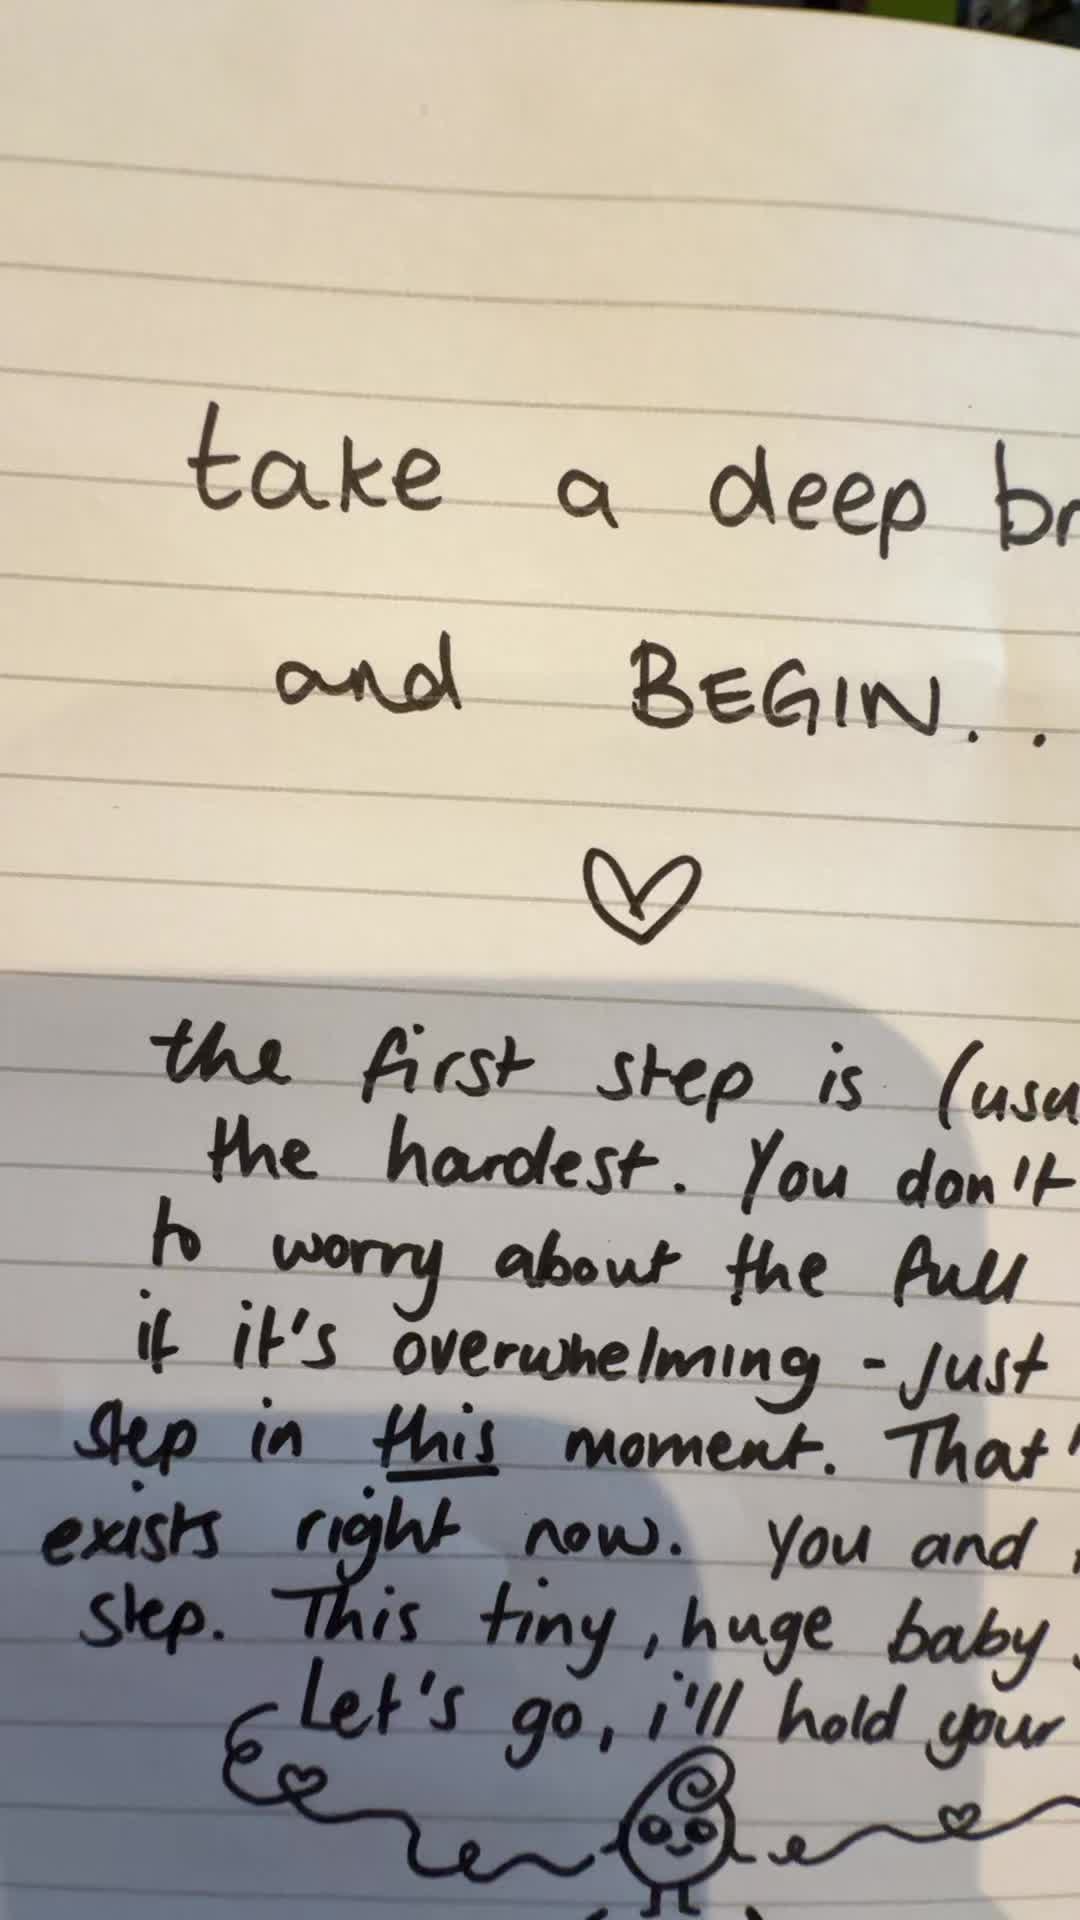 take a deep br
and BEGIN..
the first step is (usu
the hardest. You don't
to worry about the full
if it's overwhelming - just
step in this moment. That'
exists right now. you and
step. This tiny, huge baby
Let's go, i'll hold your